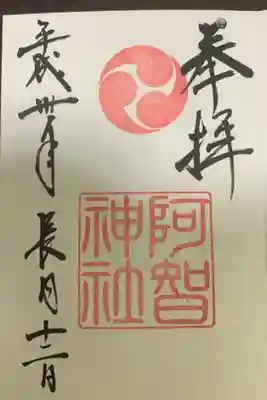 奉拝
阿智
神社
平成卅年
長月十二日